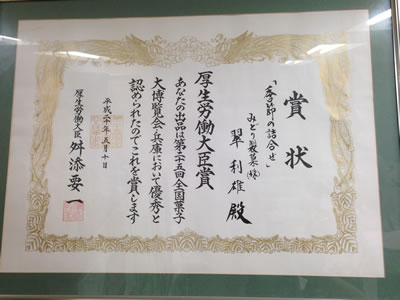 賞状
「季節の詰合せ」
みどり製菓(株)
翠 利雄 殿
厚生労働大臣賞
あなたの出品は第二十五回全国菓子
大博覧会・兵庫において優秀と
認められたのでこれを賞します
平成二十年五月十日
厚生労働大臣 舛添要一